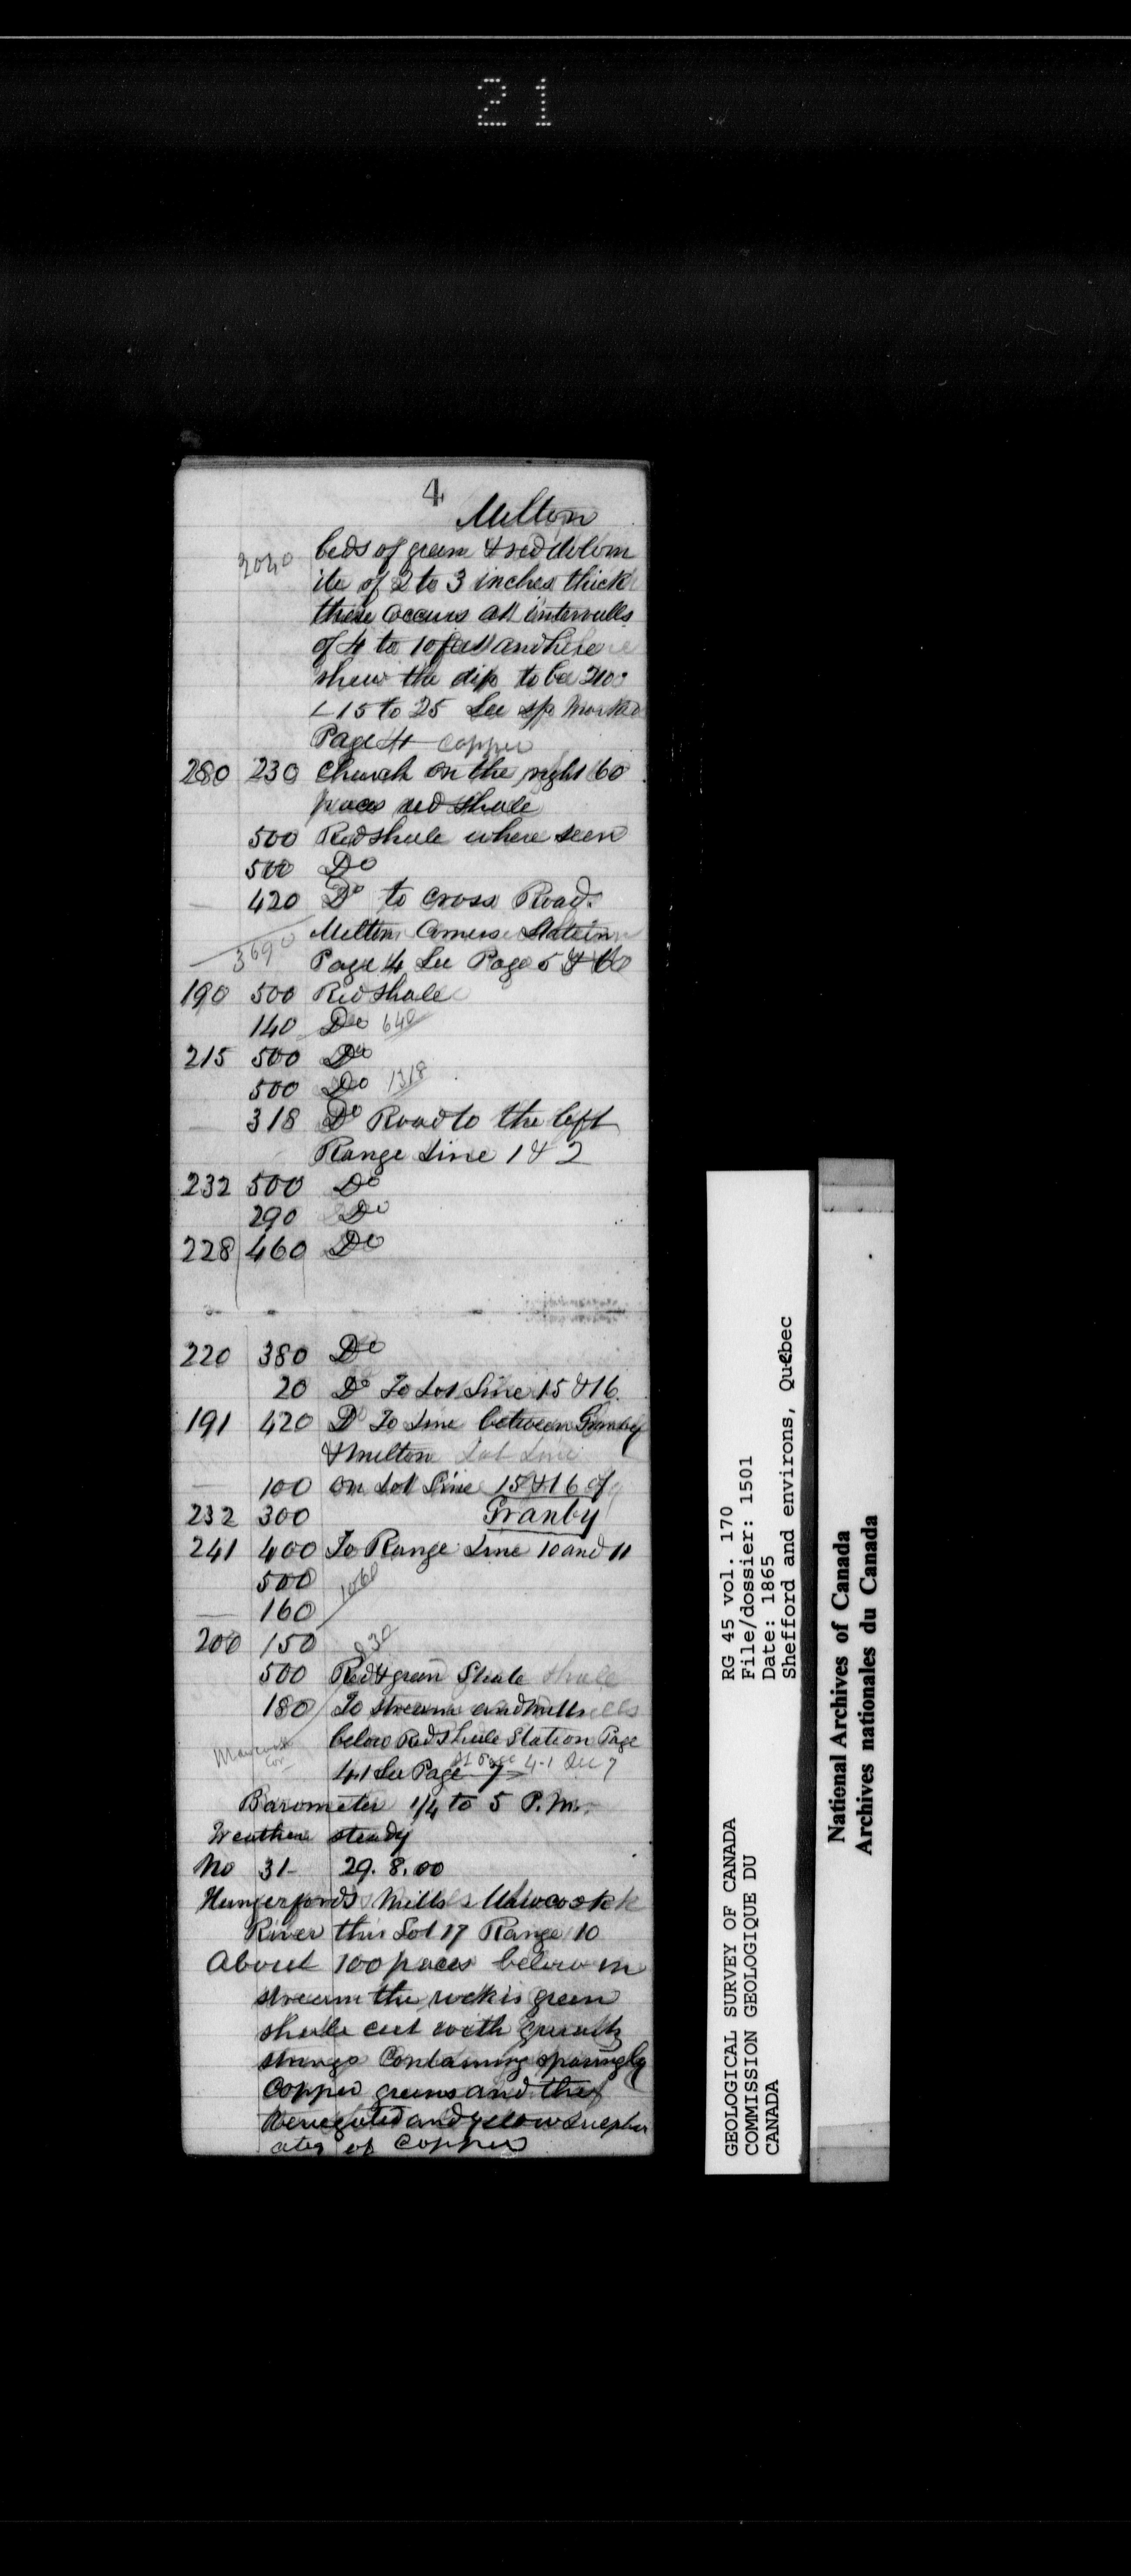 21
4
Milton
2040 beds of green & red dolom
ite of 2 to 3 inches thick
these occurs at intervalls
of 4 to 10 feet and here
shew the dip to be 200
∠ 15 to 25 See sp marked
Page 4 copper
280 230 Church on the right 60
paces red shale
500 Red shale where seen
500 Do
420 Do to cross Road
Milton Corners Station
3690 Page 4 See Page 5 & 6
190 500 Red shale
140 Do 640
215 500 Do
500 Do 1318
318 Do Road to the left
Range Line 1 & 2
232 500 Do
290 Do
228 460 Do
220 380 Do
20 Do To Lot Line 15 & 16
191 420 D To Line between Granby
& milton Lot Line
100 on Lot Line 15 & 16 of
232 300 Granby
241 400 To Range Line 10 and 11
500 1060
160
200 150 830
500 Red & green Shale shale
180 To stream and mills
below Red Shale Station Page
4.1 See Page 7 4.1 See 7
Barometer 1/4 to 5 P.M.
Weather steady
No 31 29.8.00
Hungerfords Mills
River this Lot 17 Range 10
About 100 paces below in
stream the rock is green
shale cut with quartz
strings Containing sparingly
Copper greens and the
Veriegated and yellow sulphur
ates of Copper
GEOLOGICAL SURVEY OF CANADA
COMMISSION GEOLOGIQUE DU
CANADA
RG 45 vol. 170
File/dossier: 1501
Date: 1865
Shefford and environs, Quebec
National Archives of Canada
Archives nationales du Canada